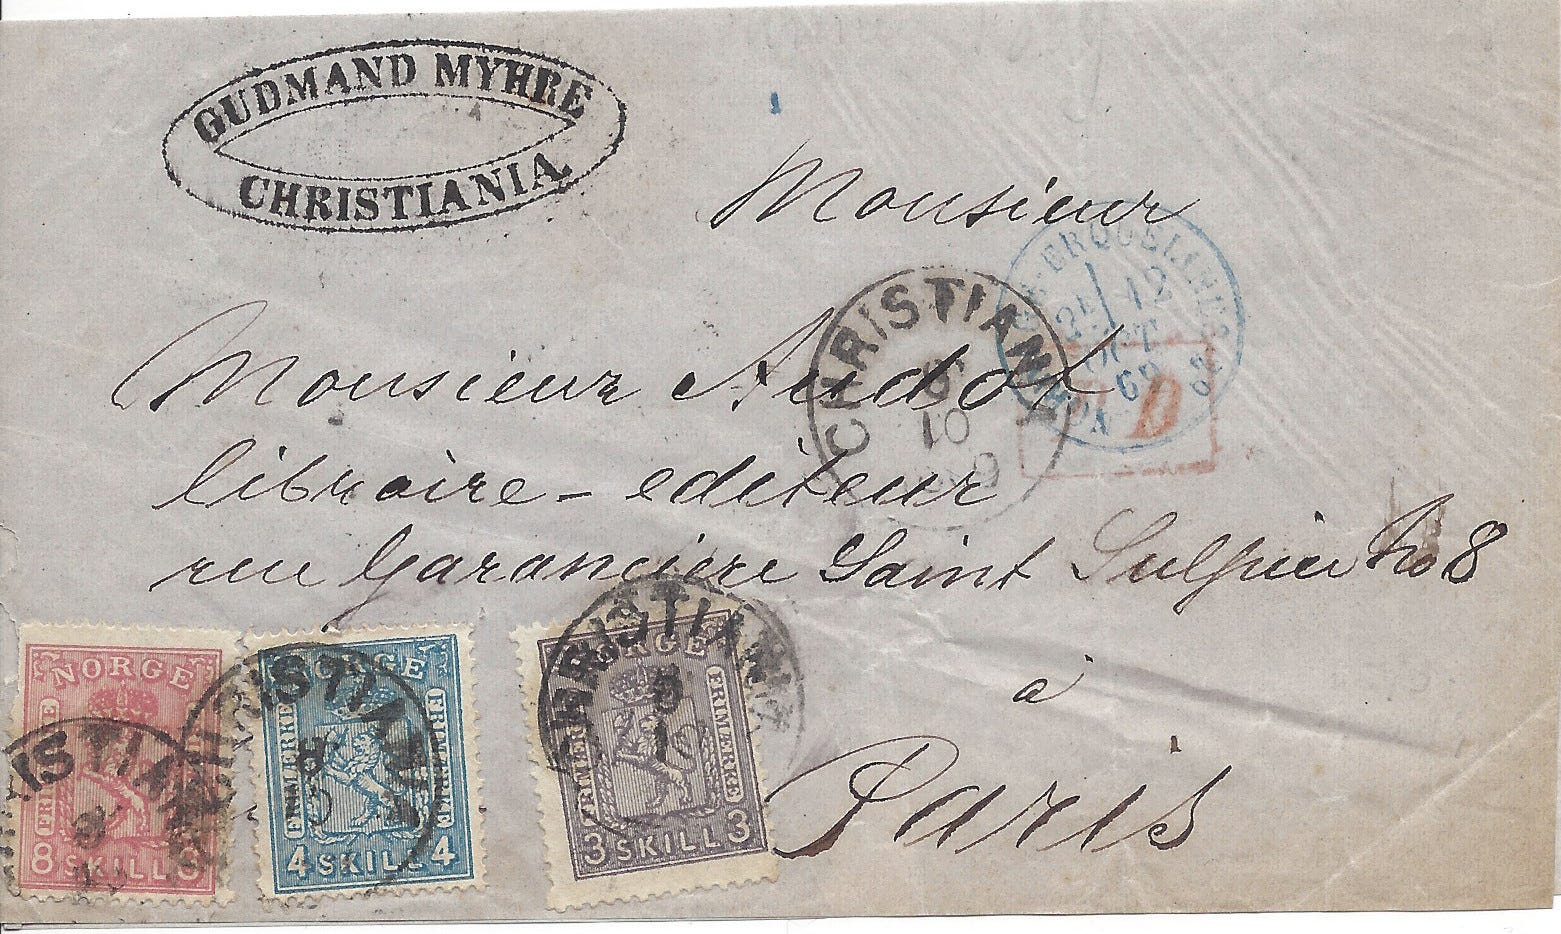 GUDMAND MYHRE
CHRISTIANIA.
Monsieur
ERQUELINES
2E 12
OCT
69
CHRISTIANIA
10
PD
Monsieur Audot
libraire - editeur
rue Garancière Saint Sulpice No 8
à
Paris
NORGE
FRIMERKE
8 SKILL 8
CHRISTIANIA
NORGE
FRIMERKE FRIMERKE
4 SKILL 4
CHRISTIANIA
NORGE
FRIMERKE FRIMERKE
3 SKILL 3
CHRISTIANIA